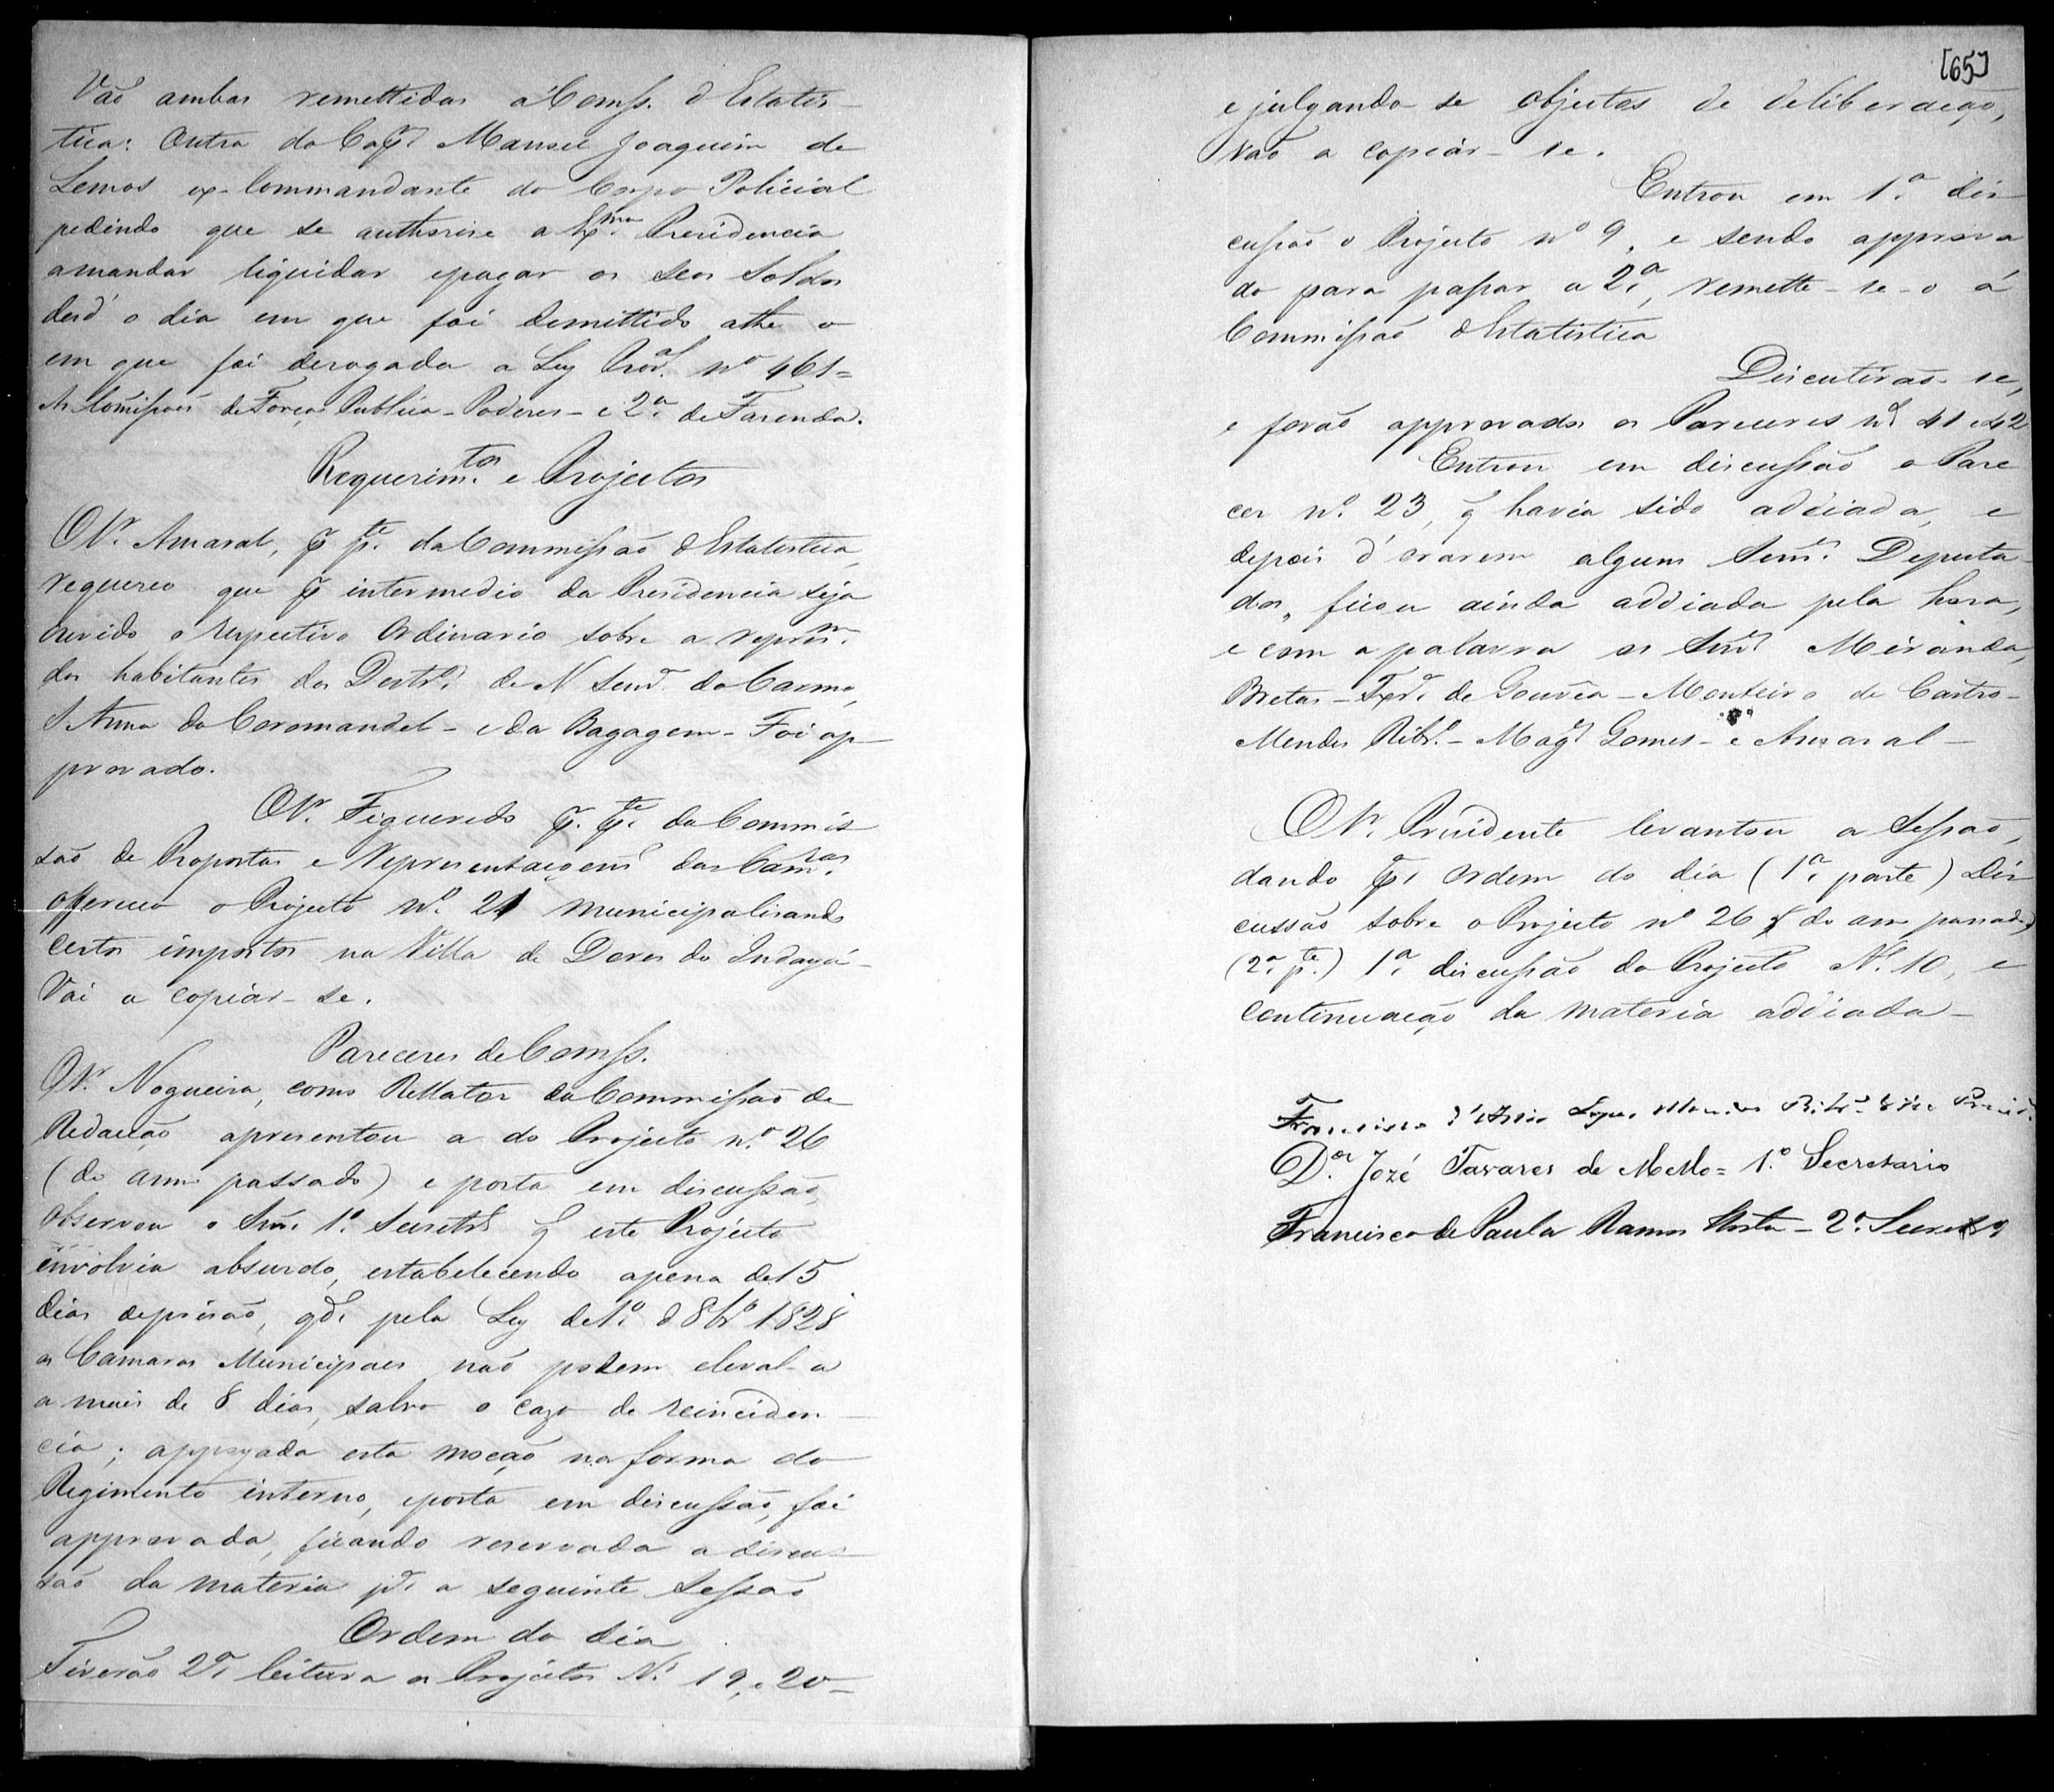 Vão ambas remettidas á Comss. d'Estatis-
tica: Outra do Cap.m Manoel Joaquim de
Lemos ex-Commandante do Corpo Policial
pedindo que se authorise a Ex.ma Presidencia
amandar liquidar epagar os seos soldos
desd'o dia em que foi demittido athe o
em que foi derogada a Ley Prov.al Nº 461=
Ás Comissoes de Força Publica - Poderes - e 2.a de Fazenda.
Requerim.tos e Projectos
O Sr. Amaral, p p.te da Commissão d'Estatistica,
requereo que p intermedio da Presidencia seja
ouvido o respectivo Ordinario sobre a repres.m
dos habitantes dos Destr.os de N Senr.a do Carmo,
S Anna do Coromandel - e da Bagagem - Foi ap-
provado.
O Sr. Figueredo p. p.te da Commis
são de Propostas e Representaçoens das Cam.ras
offereceo o Projecto Nº. 21 municipalisando
certos impostos na Villa de Dores do Indayá -
Vai a copiar-se.
Pareceres de Comss.
O Sr. Nogueira, como Rellator da Commissão de
Redacção apresentou a do Projecto nº. 26
(do anno passado) e posta em discussão,
observou o Snr. 1º. Secret.o q este Projecto
involvia absurdo, estabelecendo apena de 15
dias deprisão, qd.o pela Ley de 1º. d 8br.o 1828
as Camaras Municipaes não podem eleval-a
a mais de 8 dias, salvo o cazo de reinciden-
cia; appoyada esta moção na forma do
Regimento interno, eposta em discussão, foi
approvada, ficando reservada a discus-
são da materia p.a a seguinte sessão
Ordem do dia
Tiverão 2.a leitura os Projectos N.s 19, e 20-
[65]
e julgando se objectos de deliberação,
vão a copiár-se.
Entrou em 1.a dis-
cussão o Projecto nº 9, e sendo approva
do para passar a 2.a, remette-se-o á
Commissão d'Estatistica
Discutirão-se,
e forão approvados os Pareceres n.s 41 e 42
Entrou em discussão o Pare
cer nº. 23, q havia sido addiado, e
depois d'orarem alguns Senr.s Deputa-
dos, ficou ainda addiada pela hora,
e com a palavra os Snr.s Miranda,
Bretas - Ferr.a de Gouvêa - Monteiro de Castro -
Mendes Ribr.o - Mag.es Gomes - e Amaral -
O Sr. Presidente levantou a sessão,
dando p.a ordem do dia (1.a parte) Dis
cussão sobre o Projecto nº 26 do anno passado,
(2.a p.te) 1.a discussão do Projecto Nº. 10, e
continuação da materia addiada -
Francisco d'Assis Lopes Mendes Ribr.o Vice Presid.
D.or Jozé Tavares de Mello = 1.º Secretario
Francisco de Paula Ramos Horta - 2º. Secret.o